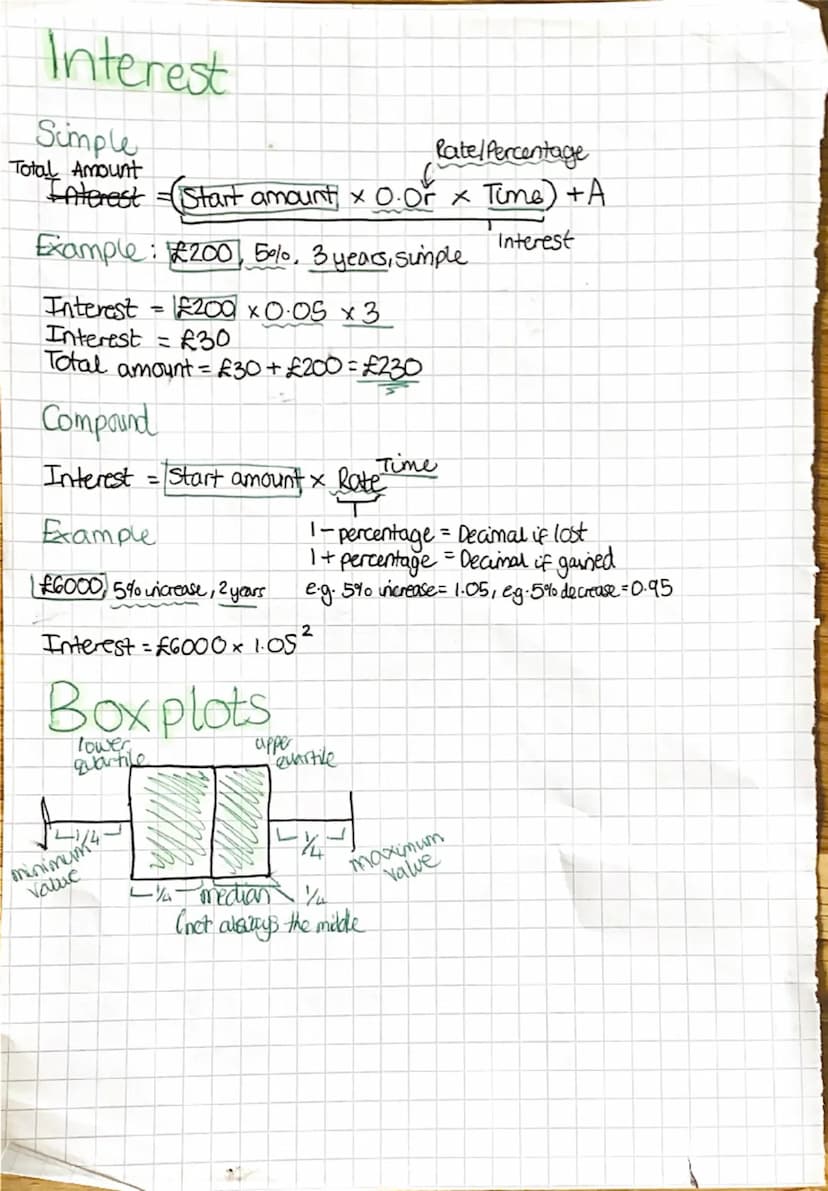 Interest
Simple
Rate/Percentage
Total Amount
Interest = (Start amount × 0.0r × Time) + A
Interest
Example: £200, 5%, 3 years, simple
Interest = £200 × 0.05 × 3
Interest = £30
Total amount = £30 + £200 = £230
Compound
Interest = Start amount × Rate^Time
Example
1 - percentage = Decimal if lost
1 + percentage = Decimal if gained
£6000, 5% increase, 2 years
e.g. 5% increase = 1.05, eg. 5% decrease = 0.95
Interest = £6000 × 1.05²
Box plots
lower quartile
upper quartile
1/4
1/4
minimum value
maximum value
1/4
median
1/4
(not always the middle